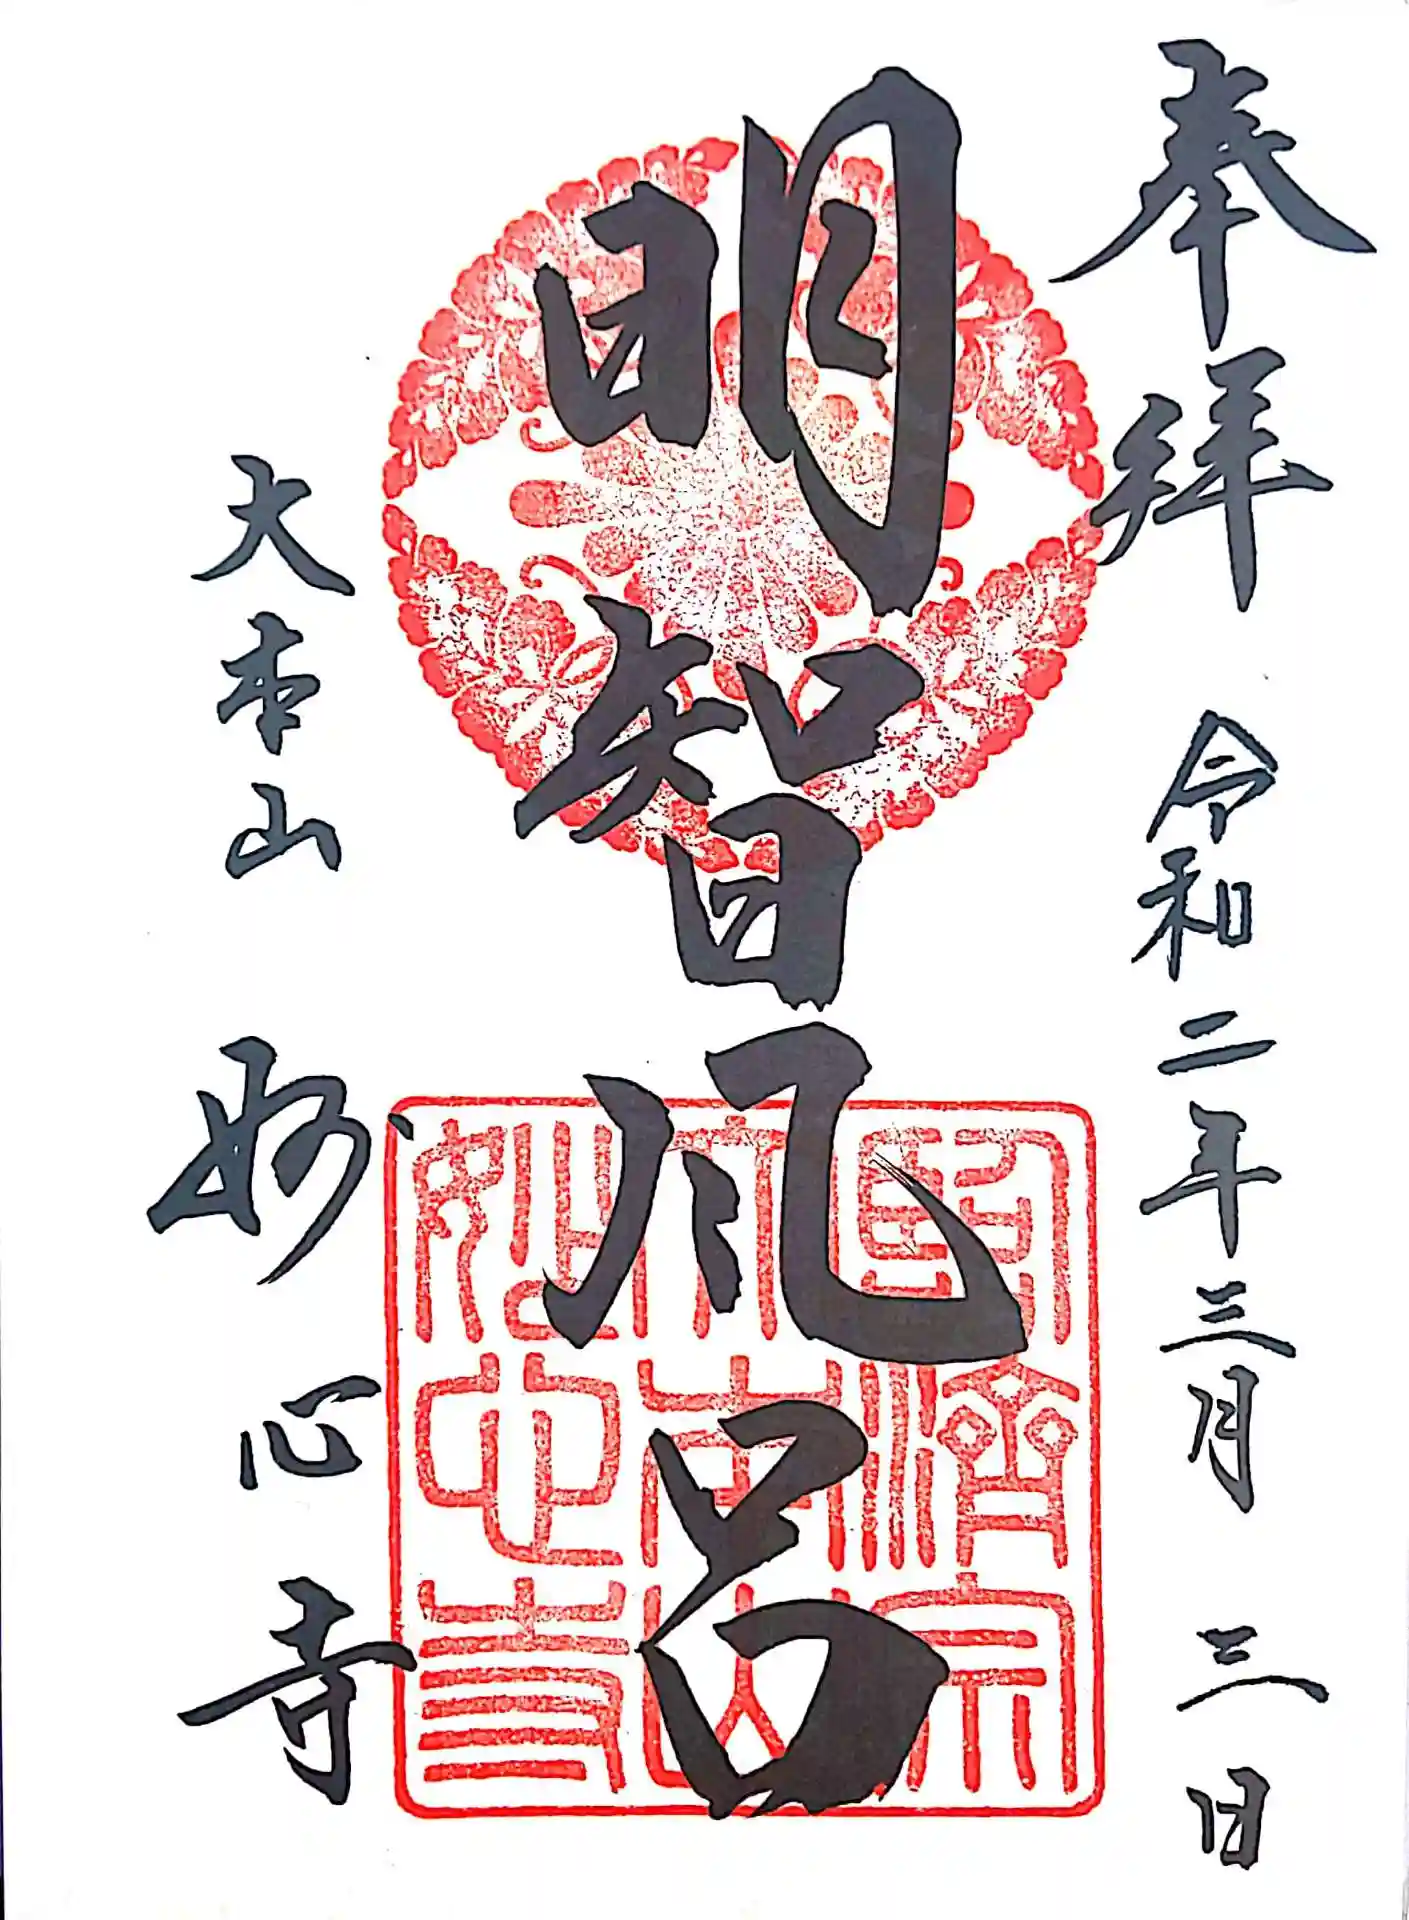 奉拝 令和二年三月三日
明智風呂
臨濟宗
大本山
妙心寺
大本山 妙心寺